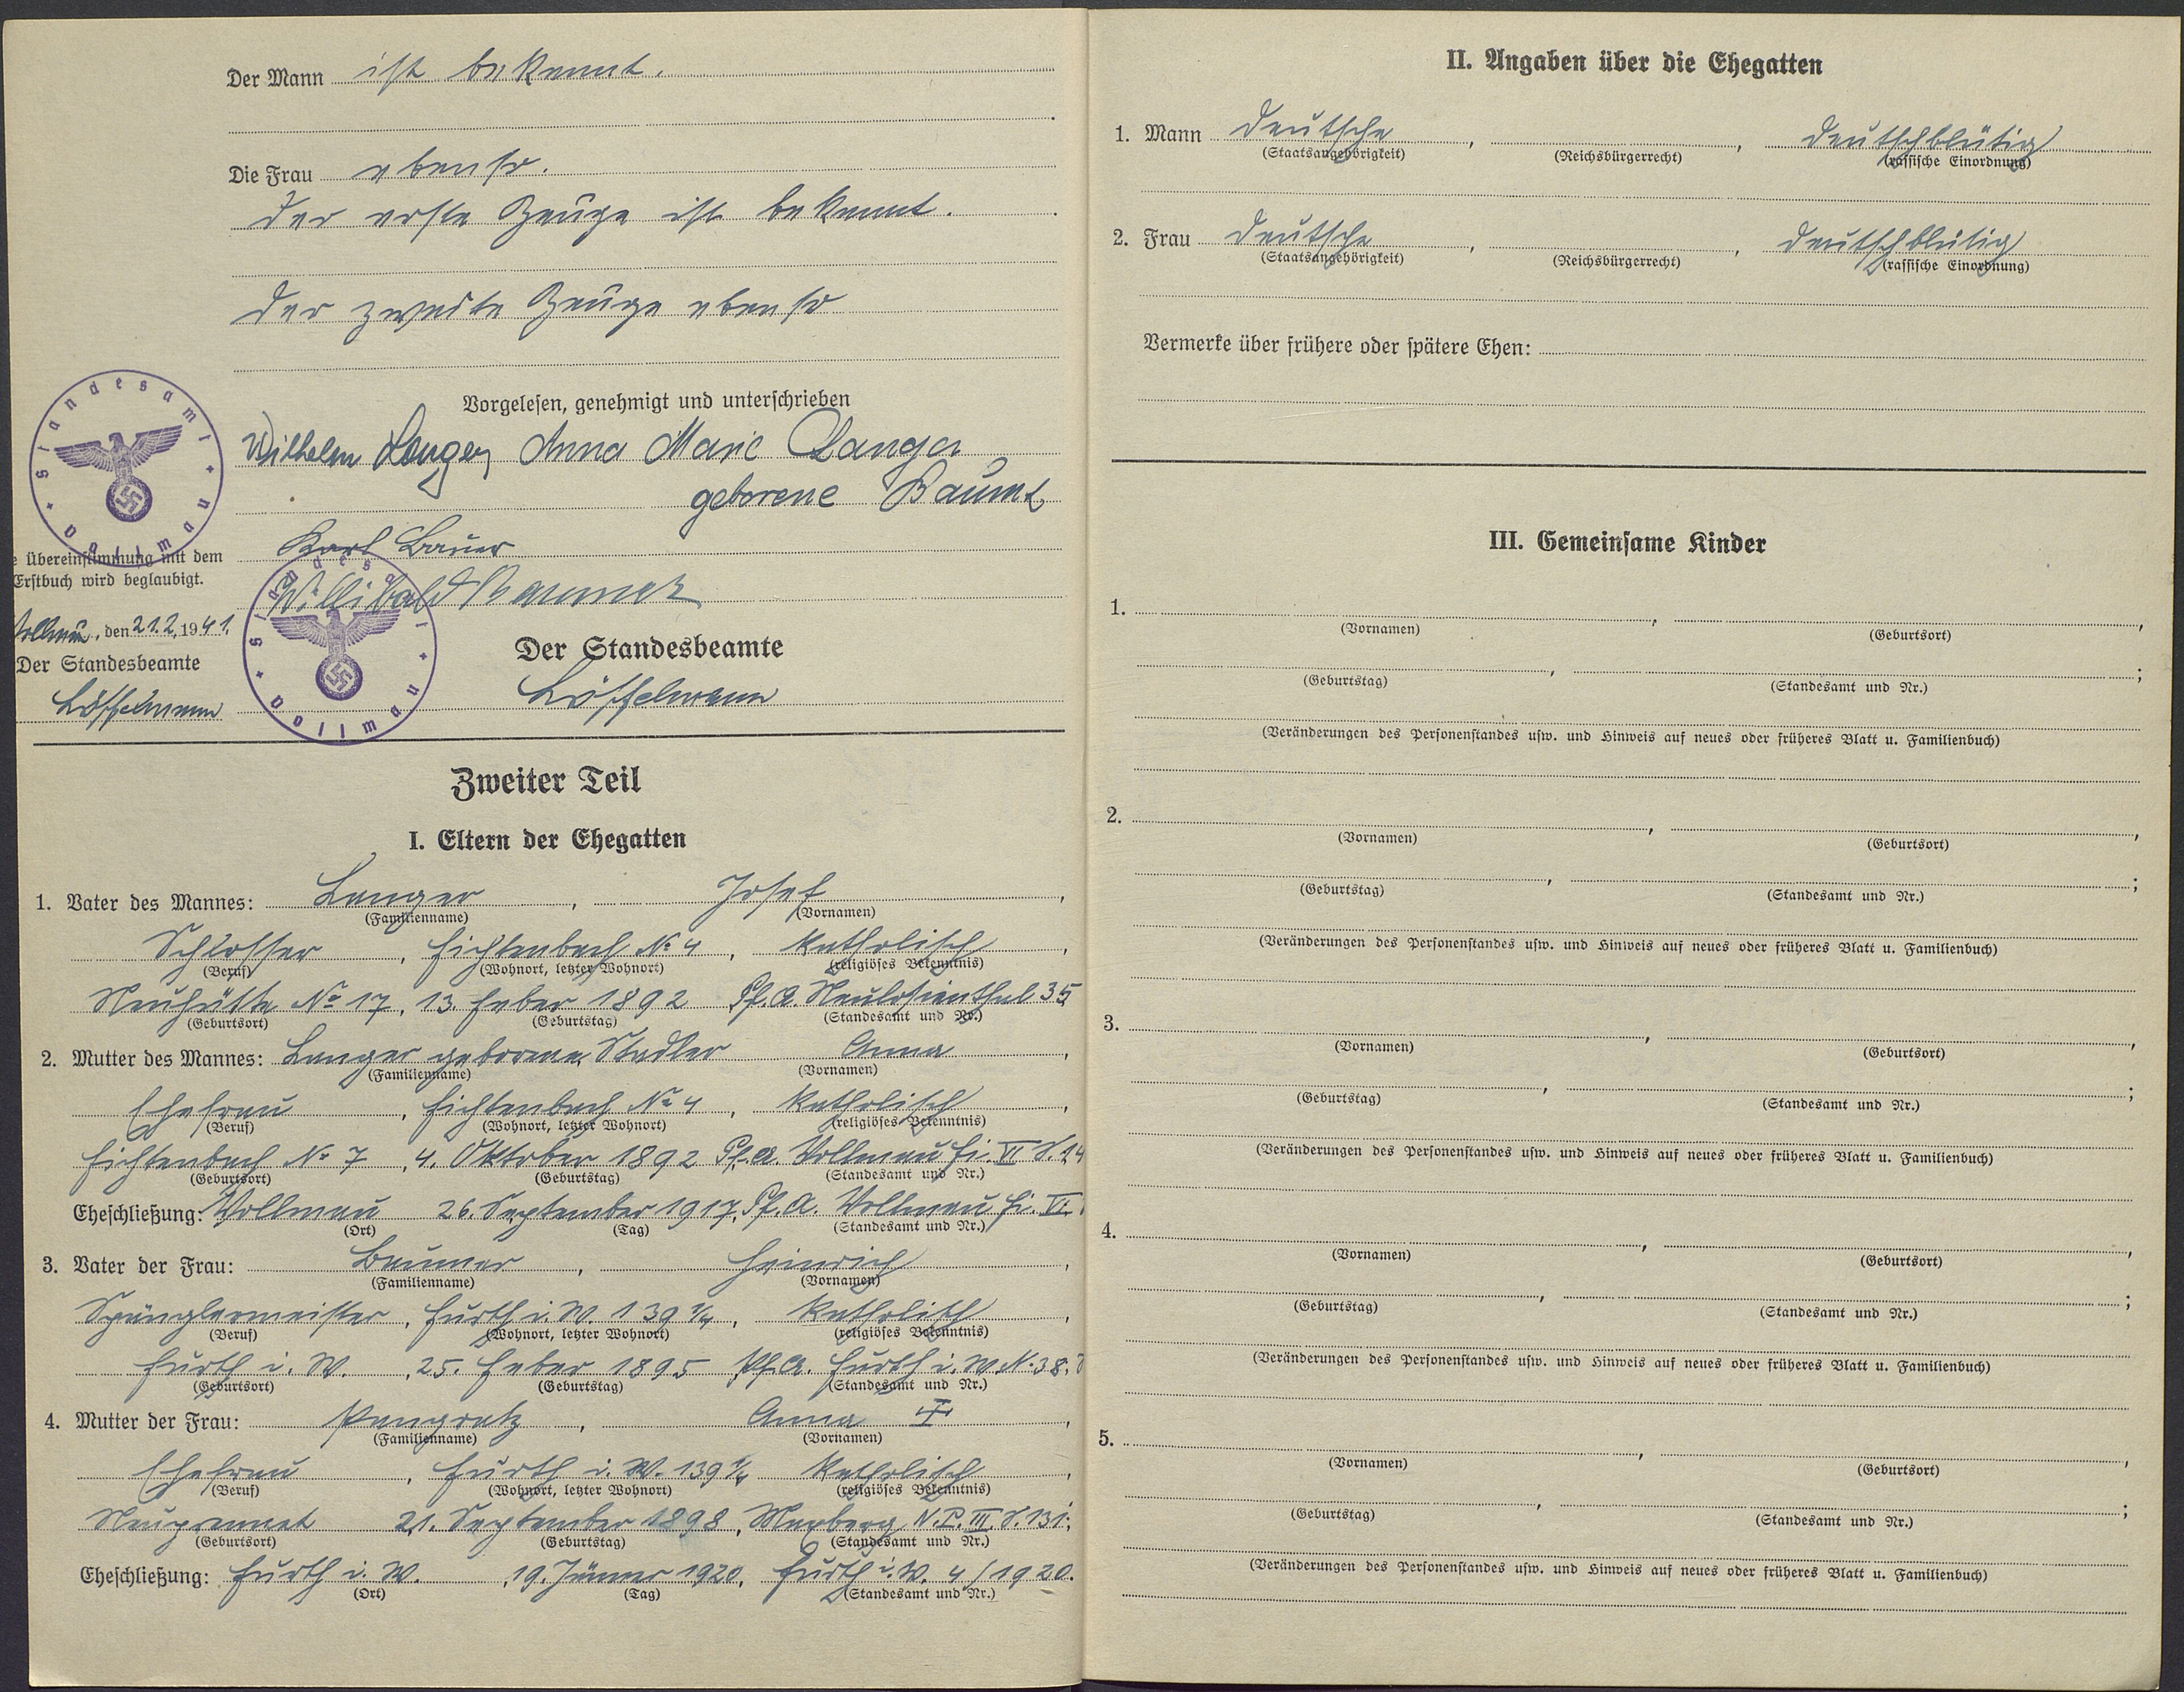 Der Mann ist bekannt.
Die Frau ebenso.
Der erste Zeuge ist bekannt.
Der zweite Zeuge ebenso
Vorgelesen, genehmigt und unterschrieben
Wilhelm Langer, Anna Marie Langer
geborene
Karl Bauer
Willibald
Standesamt Vollmau
e Übereinstimmung mit dem
Erstbuch wird beglaubigt.
Vollmau, den 21.2. 1941.
Der Standesbeamte
Löffelmann
Standesamt Vollmau
Der Standesbeamte
Löffelmann
Zweiter Teil
I. Eltern der Ehegatten
1. Vater des Mannes: Langer, Josef,
(Familienname) (Vornamen)
Schlosser, Fichtenbach No 4, katholisch,
(Beruf) (Wohnort, letzter Wohnort) (religiöses Bekenntnis)
Neuhütte No 17, 13. Feber 1892 Pf. A. Neulosimthal 35
(Geburtsort) (Geburtstag) (Standesamt und Nr.)
2. Mutter des Mannes: Langer geborene Stadler Anna,
(Familienname) (Vornamen)
Ehefrau, Fichtenbach No 4, katholisch,
(Beruf) (Wohnort, letzter Wohnort) (religiöses Bekenntnis)
Fichtenbach No 7, 4. Oktober 1892 Pf. A. Vollmau Fi. VI S. 14
(Geburtsort) (Geburtstag) (Standesamt und Nr.)
Eheschließung: Vollmau 26. September 1917, Pf. A. Vollmau Fi. VI.
(Ort) (Tag) (Standesamt und Nr.)
3. Vater der Frau: Baumer, Heinrich,
(Familienname) (Vornamen)
Spänglermeister, Furth i. W. 139 ¼, katholisch,
(Beruf) (Wohnort, letzter Wohnort) (religiöses Bekenntnis)
Furth i. W., 25. Feber 1895 Pf. A. Furth i. W. N. 38.
(Geburtsort) (Geburtstag) (Standesamt und Nr.)
4. Mutter der Frau: Pangratz, Anna,
(Familienname) (Vornamen)
Ehefrau, Furth i. W. 139 ¼ katholisch,
(Beruf) (Wohnort, letzter Wohnort) (religiöses Bekenntnis)
21. September 1898, N. P. III S. 131.
(Geburtsort) (Geburtstag) (Standesamt und Nr.)
Eheschließung: Furth i. W., 19. Jänner 1920, Furth i. W. 4/1920.
(Ort) (Tag) (Standesamt und Nr.)
II. Angaben über die Ehegatten
1. Mann Deutsche, , deutschblütig
(Staatsangehörigkeit) (Reichsbürgerrecht) (rassische Einordnung)
2. Frau Deutsche, , deutschblütig
(Staatsangehörigkeit) (Reichsbürgerrecht) (rassische Einordnung)
Vermerke über frühere oder spätere Ehen:
III. Gemeinsame Kinder
1. , ,
(Vornamen) (Geburtsort)
, ;
(Geburtstag) (Standesamt und Nr.)
(Veränderungen des Personenstandes usw. und Hinweis auf neues oder früheres Blatt u. Familienbuch)
2. , ,
(Vornamen) (Geburtsort)
, ;
(Geburtstag) (Standesamt und Nr.)
(Veränderungen des Personenstandes usw. und Hinweis auf neues oder früheres Blatt u. Familienbuch)
3. , ,
(Vornamen) (Geburtsort)
, ;
(Geburtstag) (Standesamt und Nr.)
(Veränderungen des Personenstandes usw. und Hinweis auf neues oder früheres Blatt u. Familienbuch)
4. , ,
(Vornamen) (Geburtsort)
, ;
(Geburtstag) (Standesamt und Nr.)
(Veränderungen des Personenstandes usw. und Hinweis auf neues oder früheres Blatt u. Familienbuch)
5. , ,
(Vornamen) (Geburtsort)
, ;
(Geburtstag) (Standesamt und Nr.)
(Veränderungen des Personenstandes usw. und Hinweis auf neues oder früheres Blatt u. Familienbuch)